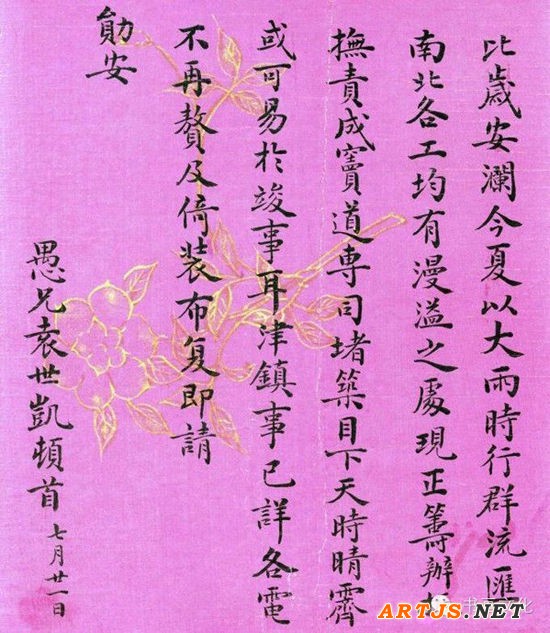 比歲安瀾今夏以大雨時行群流匯
南北各工均有漫溢之處現正籌辦
撫責成竇道專司堵築目下天時晴霽
或可易於竣事耳津鎮事已詳各電
不再贅及倚裝布复即請
勛安
愚兄袁世凱頓首 七月廿一日
ARTJS.NET